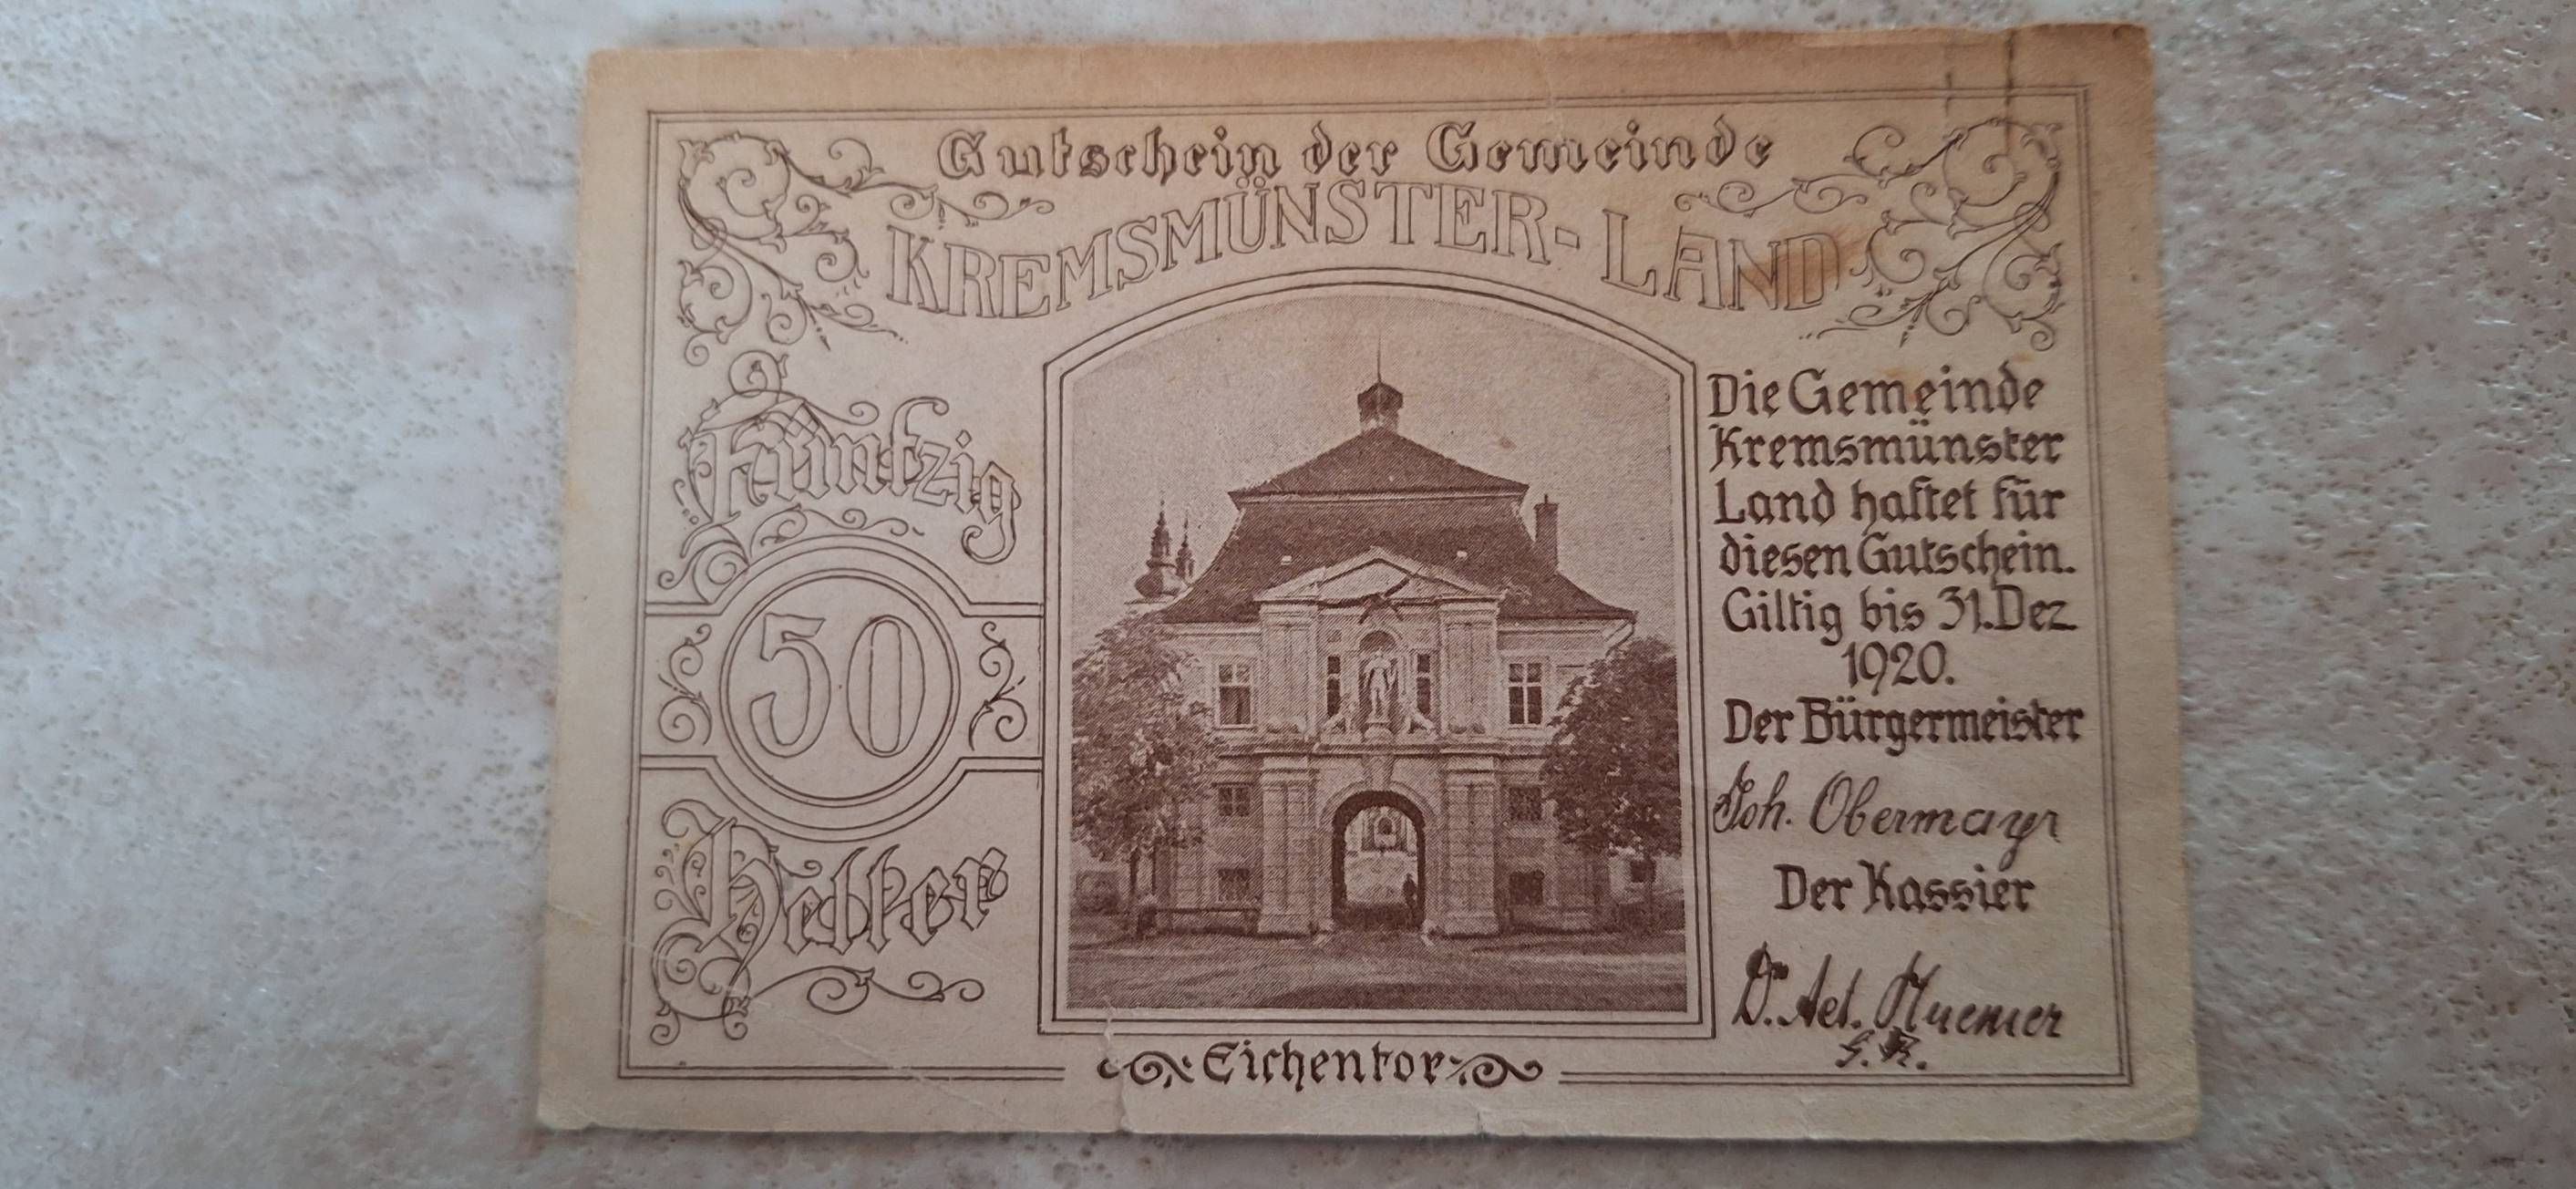 Gutschein der Gemeinde
KREMSMÜNSTER-LAND
Fünfzig
50
Heller
Die Gemeinde
Kremsmünster
Land haftet für
diesen Gutschein.
Giltig bis 31. Dez
1920.
Der Bürgermeister
Joh. Obermayr
Der Kassier
Dr. Aet. Huemer
G. R.
Eichentor